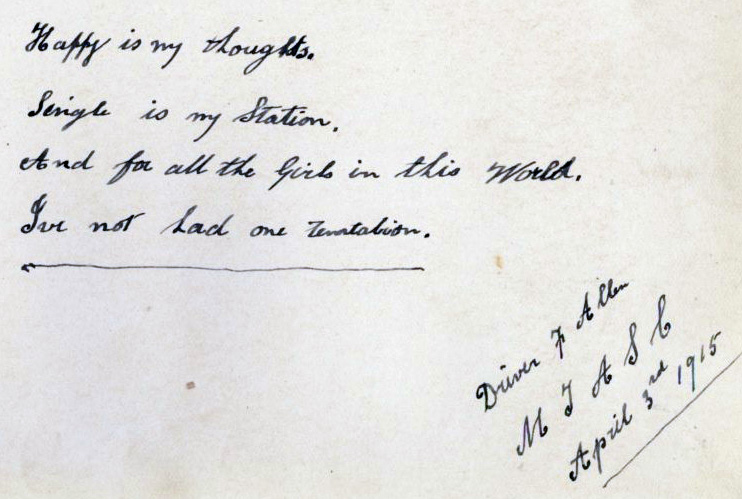 Happy is my thoughts.
Single is my Station.
And for all the Girls in this World.
I've not had one Temtation.
Driver F Allen
M T A S C
April 3rd 1915